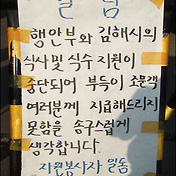 알림
행안부와 김해시의
식사 및 식수 지원이
중단되어 부득이 조문객
여러분께 지급해드리지
못함을 송구스럽게
생각합니다.
자원봉사자 일동